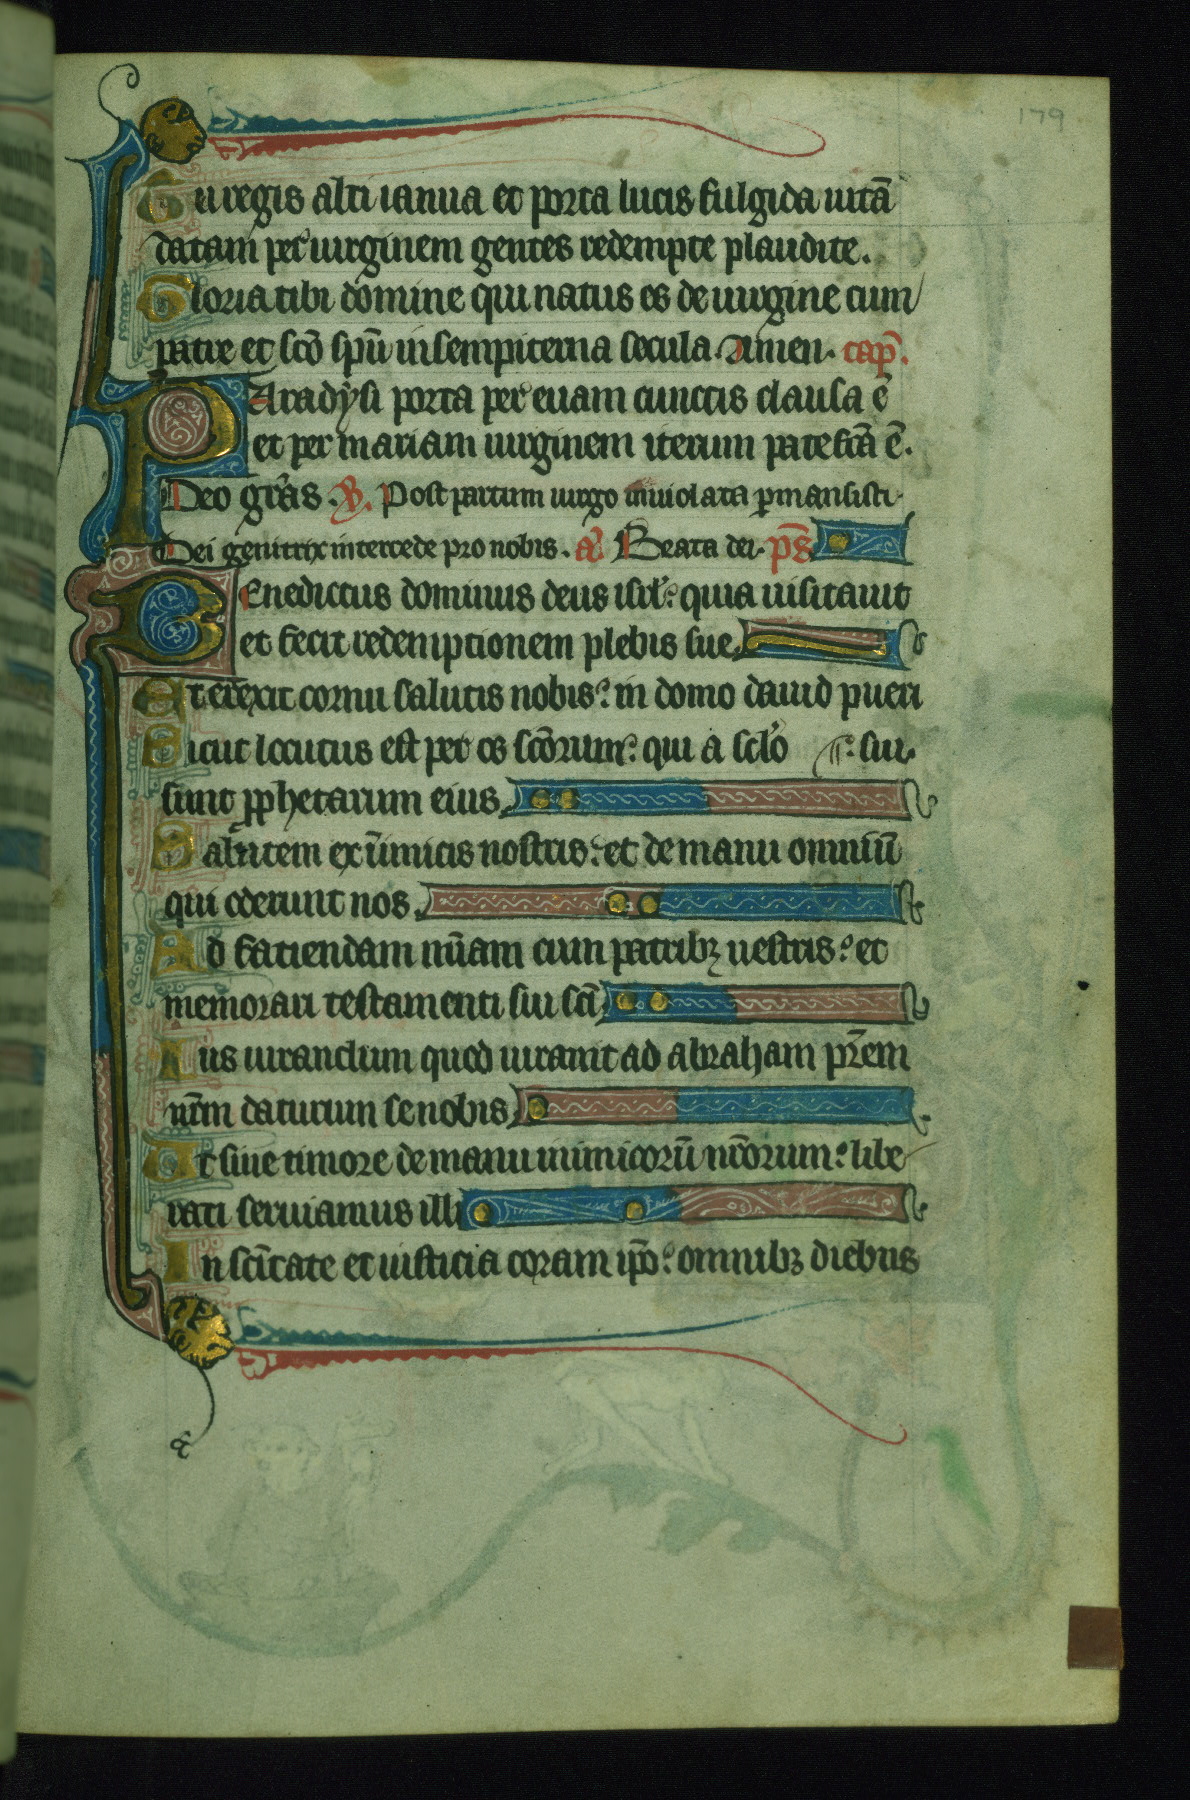 179
Tu regis alti ianua et porta lucis fulgida uitā
datam per uirginem gentes redempte plaudite.
Gloria tibi domine qui natus es de uirgine cum
patre et sc̄o sp̄u in sempiterna secula. Amen. cap̄.
Paradysi porta per euam cunctis clausa ē
et per mariam uirginem iterum patefc̄a ē.
Deo grãs. V. Post partum uirgo inuiolata ꝑmansisti.
Dei genitrix intercede pro nobis. a. Beata dei. p̄s
Benedictus dominus deus isrl̓: quia uisitauit
et fecit redemptionem plebis sue
Et erexit cornu salutis nobis: in domo dauid pueri
Sicut locutus est per os sc̄orum: qui a sclo̓ ⸿: sui.
sunt ꝓphetarum eius
Salutem ex īimicis nostris: et de manu omniū
qui oderunt nos
Ad faciendam mīam cum patribꝫ nestris: et
memorari testamenti sui sc̄i
Ius iurandum quod iurauit ad abraham pr̄em
nr̄m daturum se nobis
Ut sine timore de manu inimicorū nr̄orum: libe
rati seruiamus illi
In sc̄itate et iusticia coram ip̄o: omnibꝫ diebus